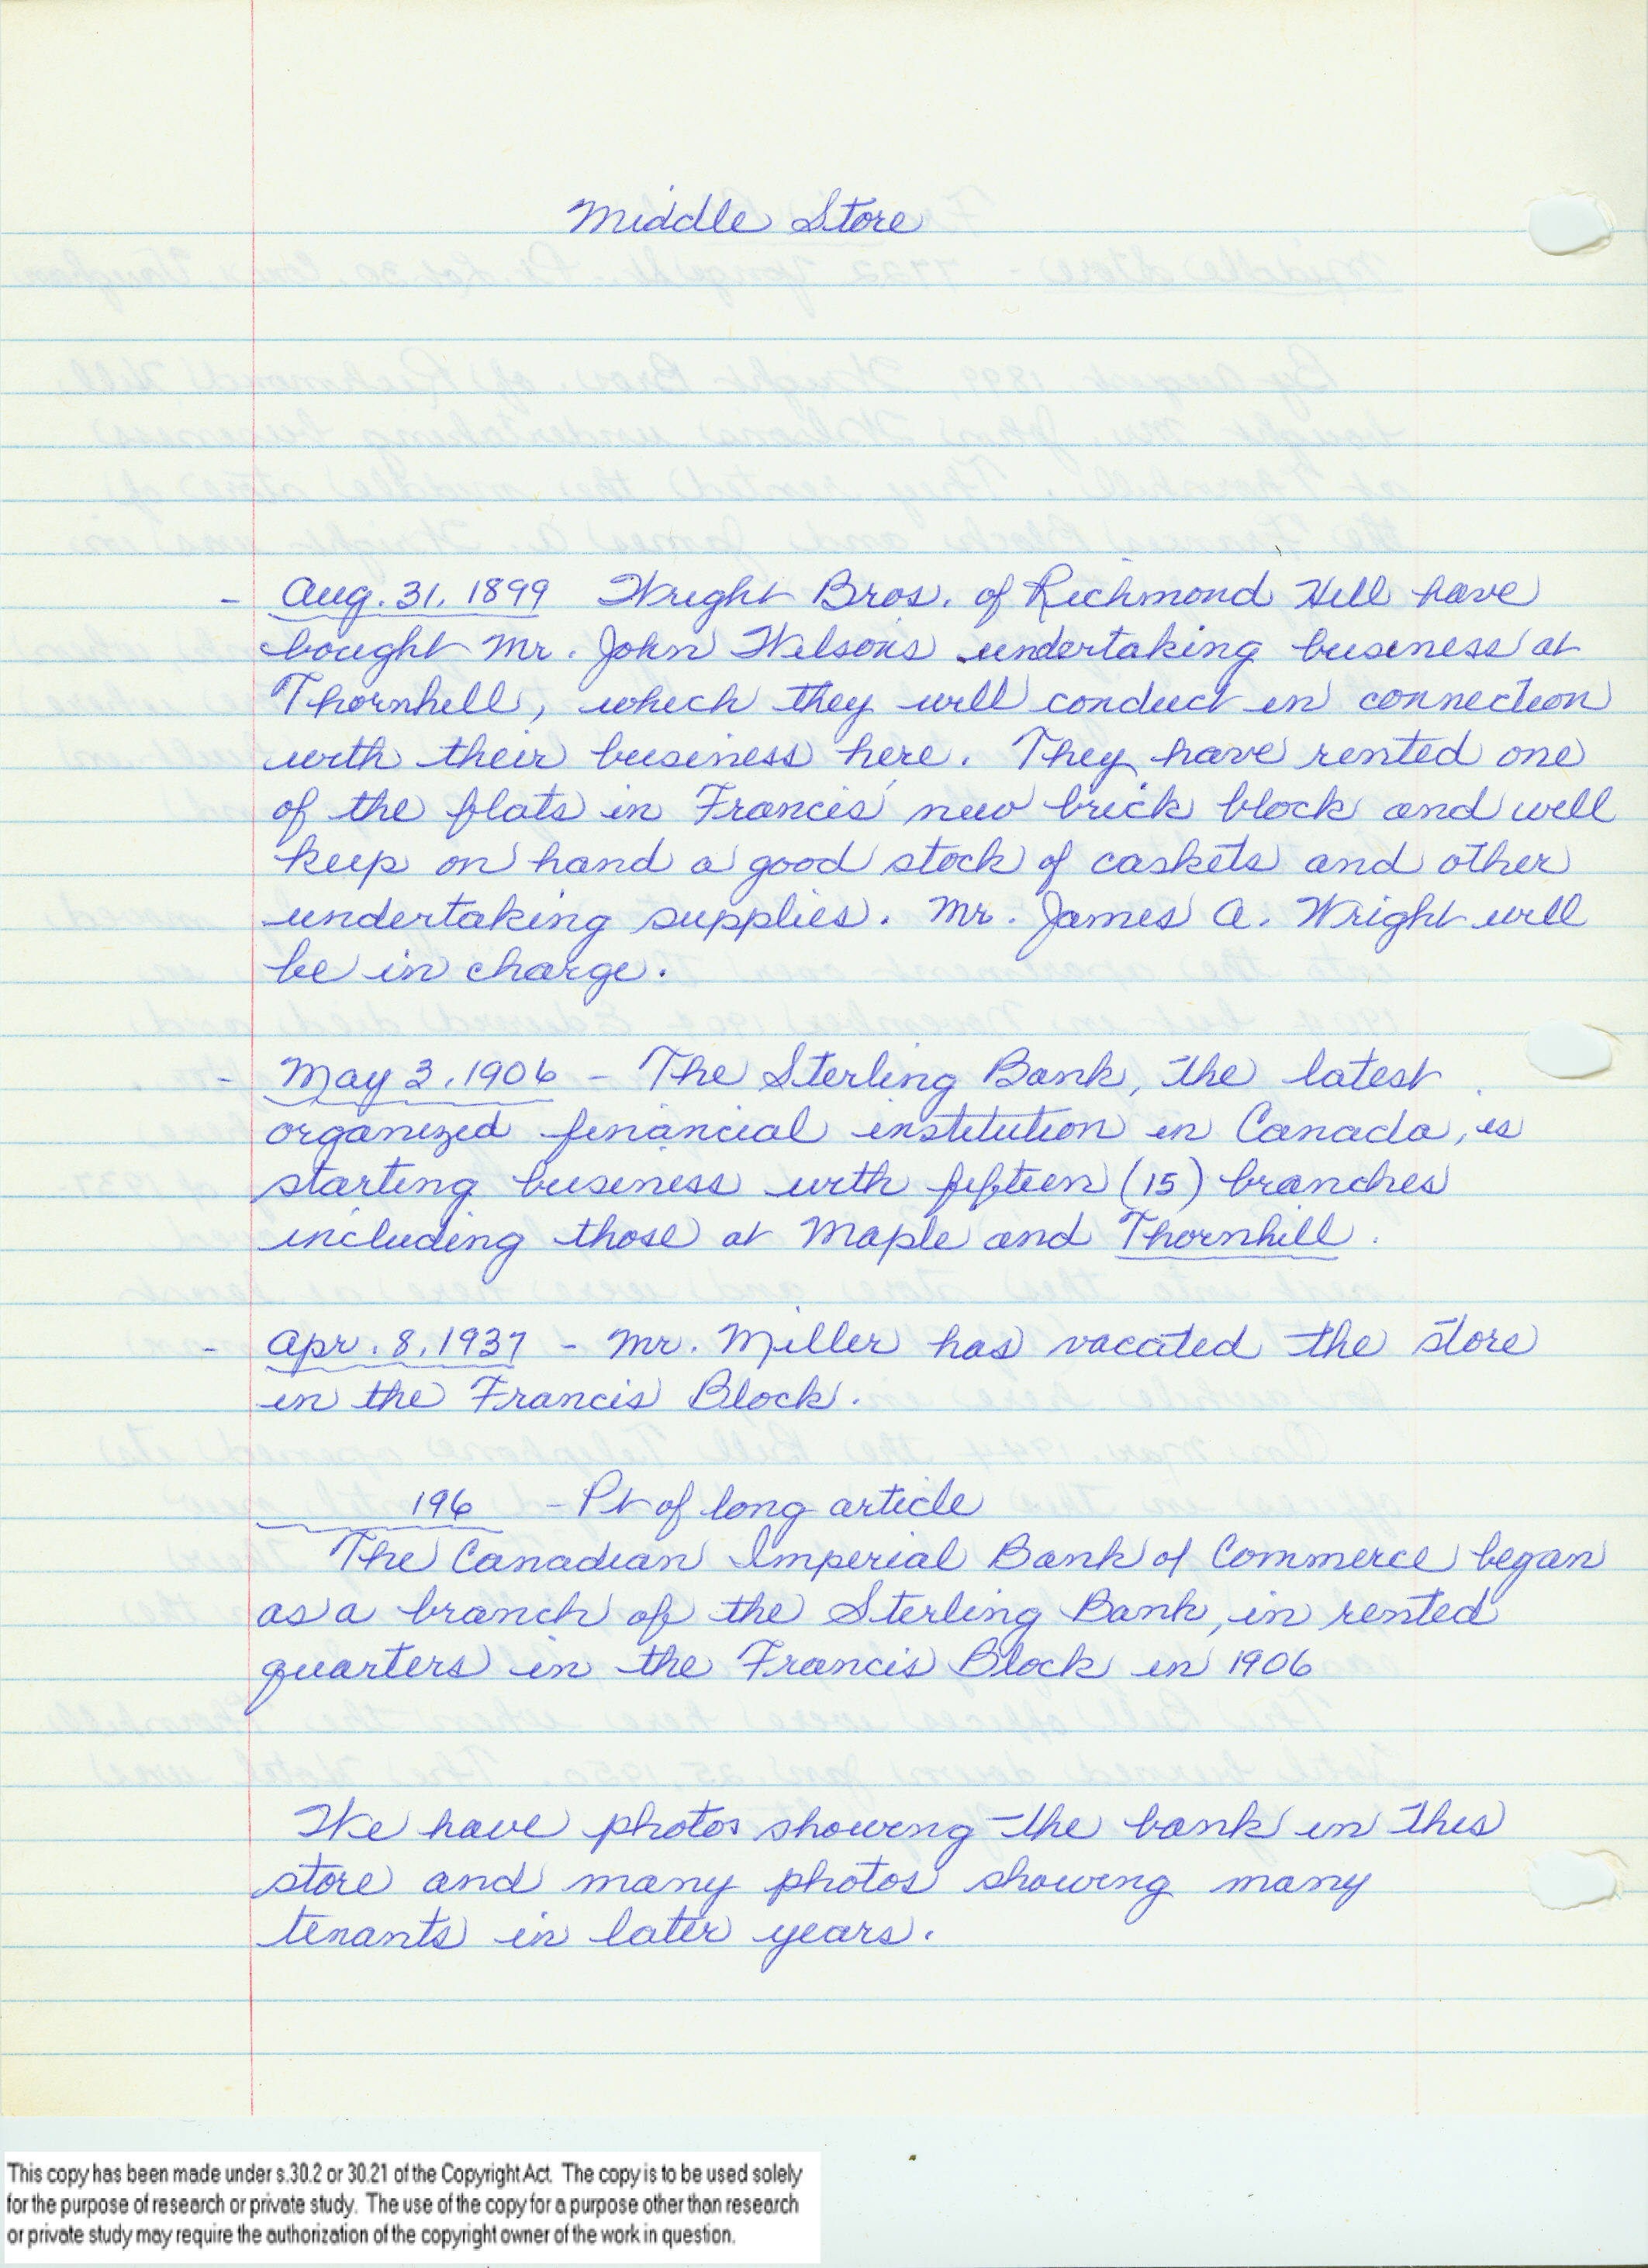 Middle Store
- Aug. 31, 1899 Wright Bros. of Richmond Hill have
bought Mr. John Wilson's undertaking business at
Thornhill, which they will conduct in connection
with their business here. They have rented one
of the flats in Francis' new brick block and will
keep on hand a good stock of caskets and other
undertaking supplies. Mr. James A. Wright will
be in charge.
- May 3, 1906 - The Sterling Bank, the latest
organized financial institution in Canada, is
starting business with fifteen (15) branches
including those at Maple and Thornhill.
- Apr. 8, 1937 - Mr. Miller has vacated the store
in the Francis Block.
196 - Pt of long article
The Canadian Imperial Bank of Commerce began
as a branch of the Sterling Bank, in rented
quarters in the Francis Block in 1906
We have photos showing the bank in this
store and many photos showing many
tenants in later years.
This copy has been made under s.30.2 or 30.21 of the Copyright Act. The copy is to be used solely
for the purpose of research or private study. The use of the copy for a purpose other than research
or private study may require the authorization of the copyright owner of the work in question.